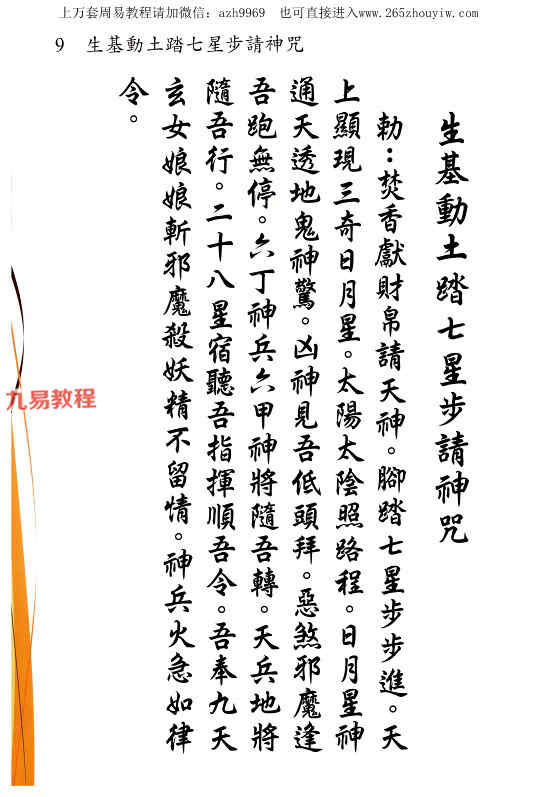 上万套周易教程请加微信：azh9969　也可直接进入www.265zhouyiw.com
9　生基動土踏七星步請神咒
生基動土踏七星步請神咒
勅：焚香獻財帛請天神。腳踏七星步步進。天
上顯現三奇日月星。太陽太陰照路程。日月星神
通天透地鬼神驚。凶神見吾低頭拜。惡煞邪魔逢
吾跑無停。六丁神兵六甲神將隨吾轉。天兵地將
隨吾行。二十八星宿聽吾指揮順吾令。吾奉九天
玄女娘娘斬邪魔殺妖精不留情。神兵火急如律
令。
九易教程